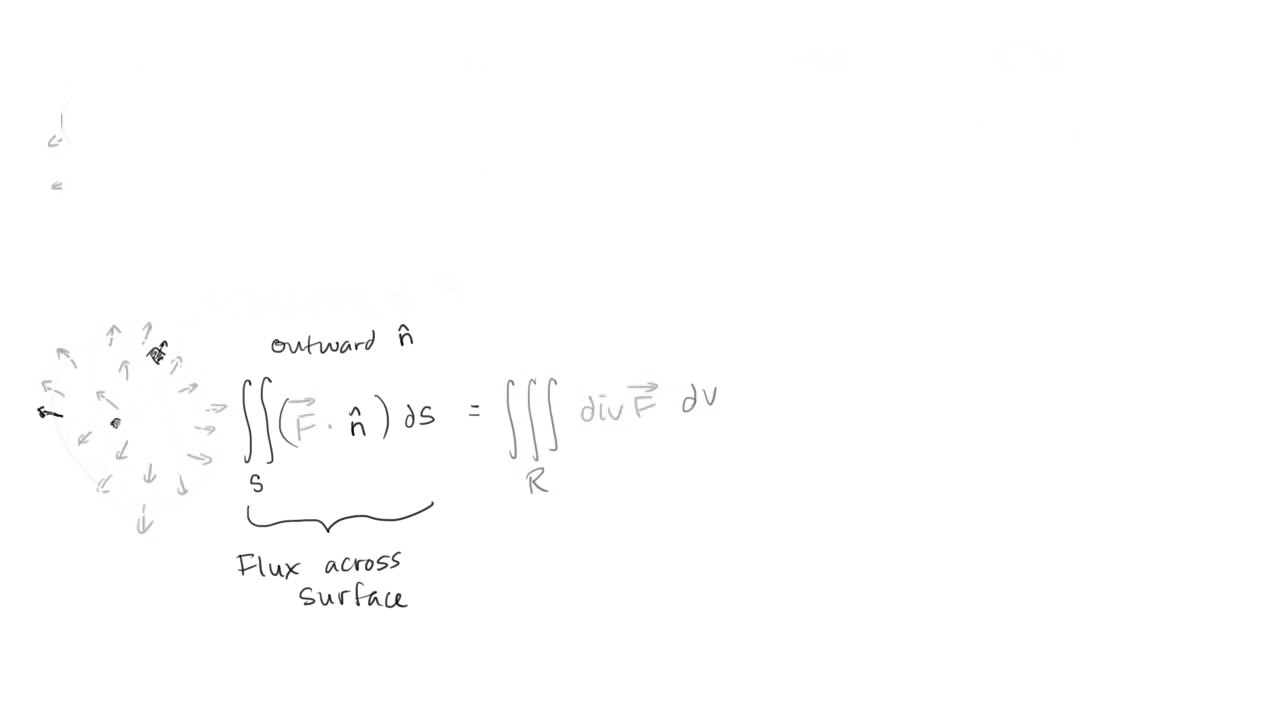 outward n̂
∬_S (F⃗ · n̂) ds = ∭_R div F⃗ dv
Flux across
surface